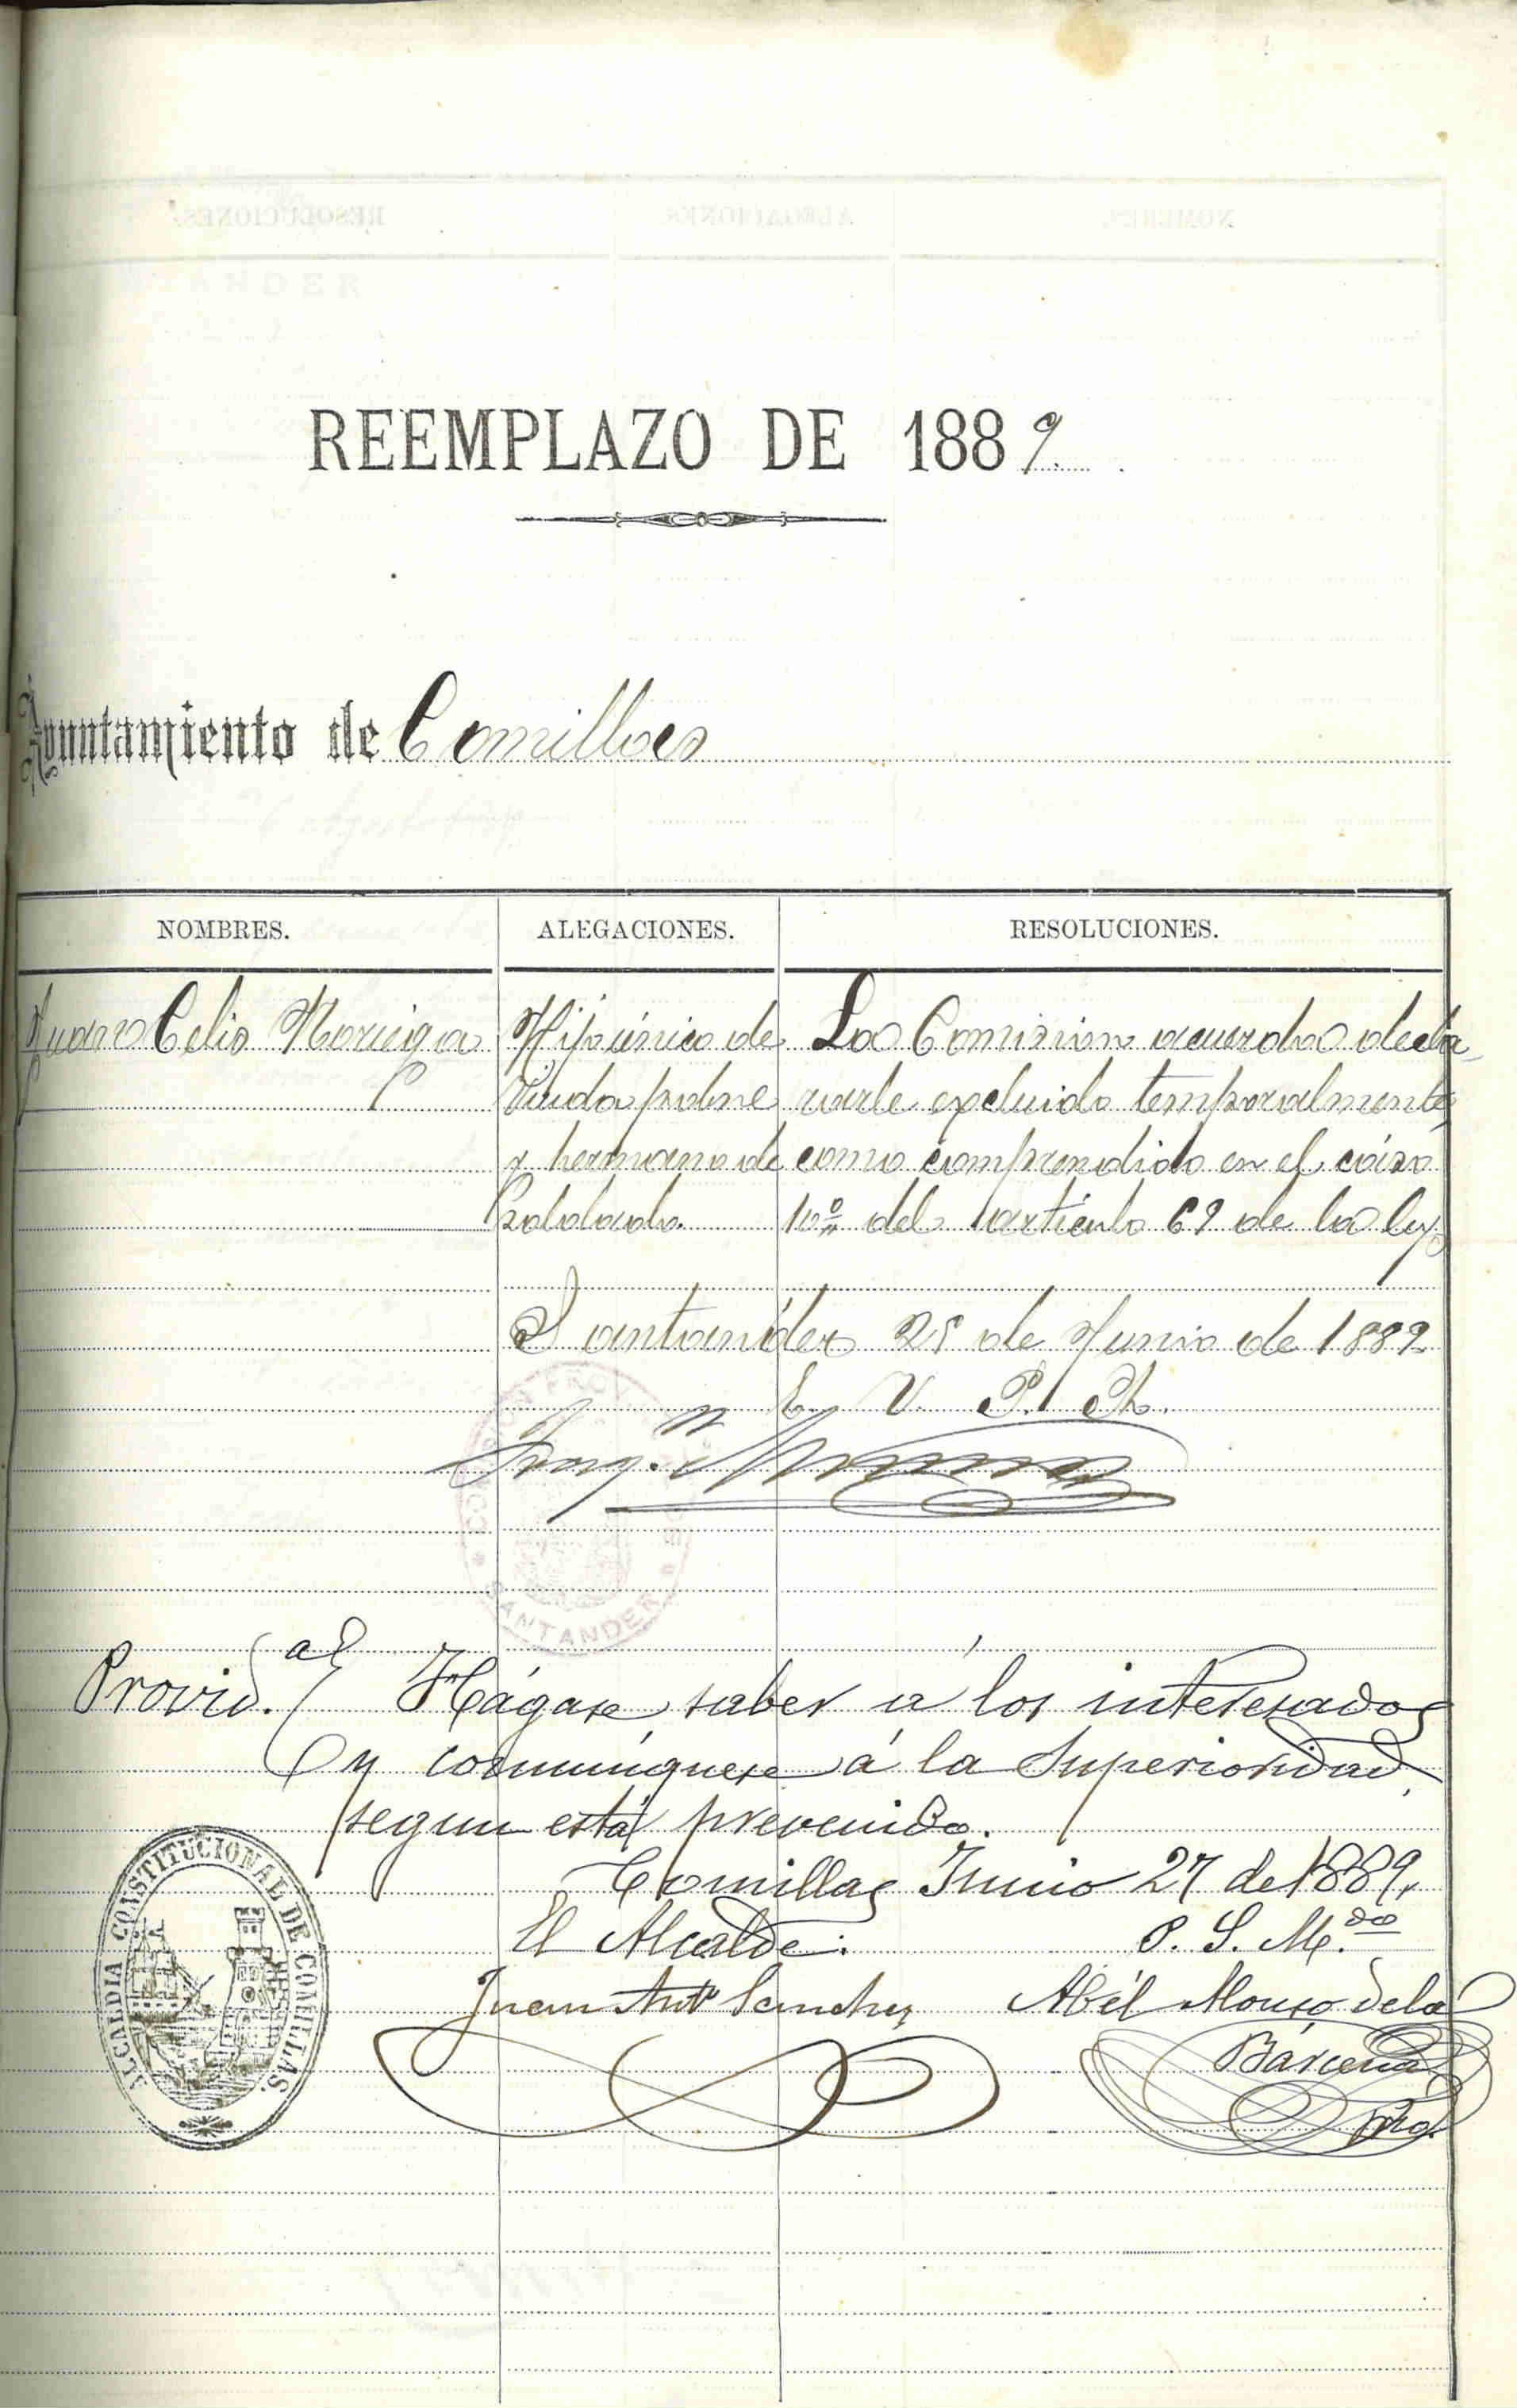 REEMPLAZO DE 1889.
Ayuntamiento de Comillas
NOMBRES. ALEGACIONES. RESOLUCIONES.
Juan Celis Noriega Hijo único de La Comision acuerda decla-
Viuda pobre rarle excluido temporalmente
y hermano de como comprendido en el caso
soldado. 10º del artículo 69 de la ley.
Santander 25 de Junio de 1889
E. V. P. A.
COMISION PROVINCIAL
SANTANDER
Provid.al Hágase saber á los interesados
y comuníquese á la Superioridad
segun está prevenido.
Comillas Junio 27 de 1889.
El Alcalde. P. S. M.do
Juan Antº Sanchez Abél Alonso de la
Bárcena
Srio.
ALCALDIA CONSTITUCIONAL DE COMILLAS.